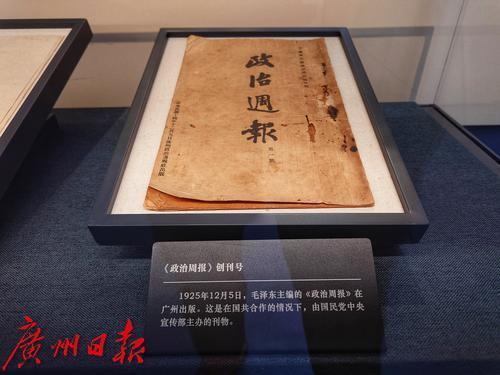 政治週報
第一期
《政治周报》创刊号
1925年12月5日，毛泽东主编的《政治周报》在
广州出版。这是在国共合作的情况下，由国民党中央
宣传部主办的刊物。
廣州日報